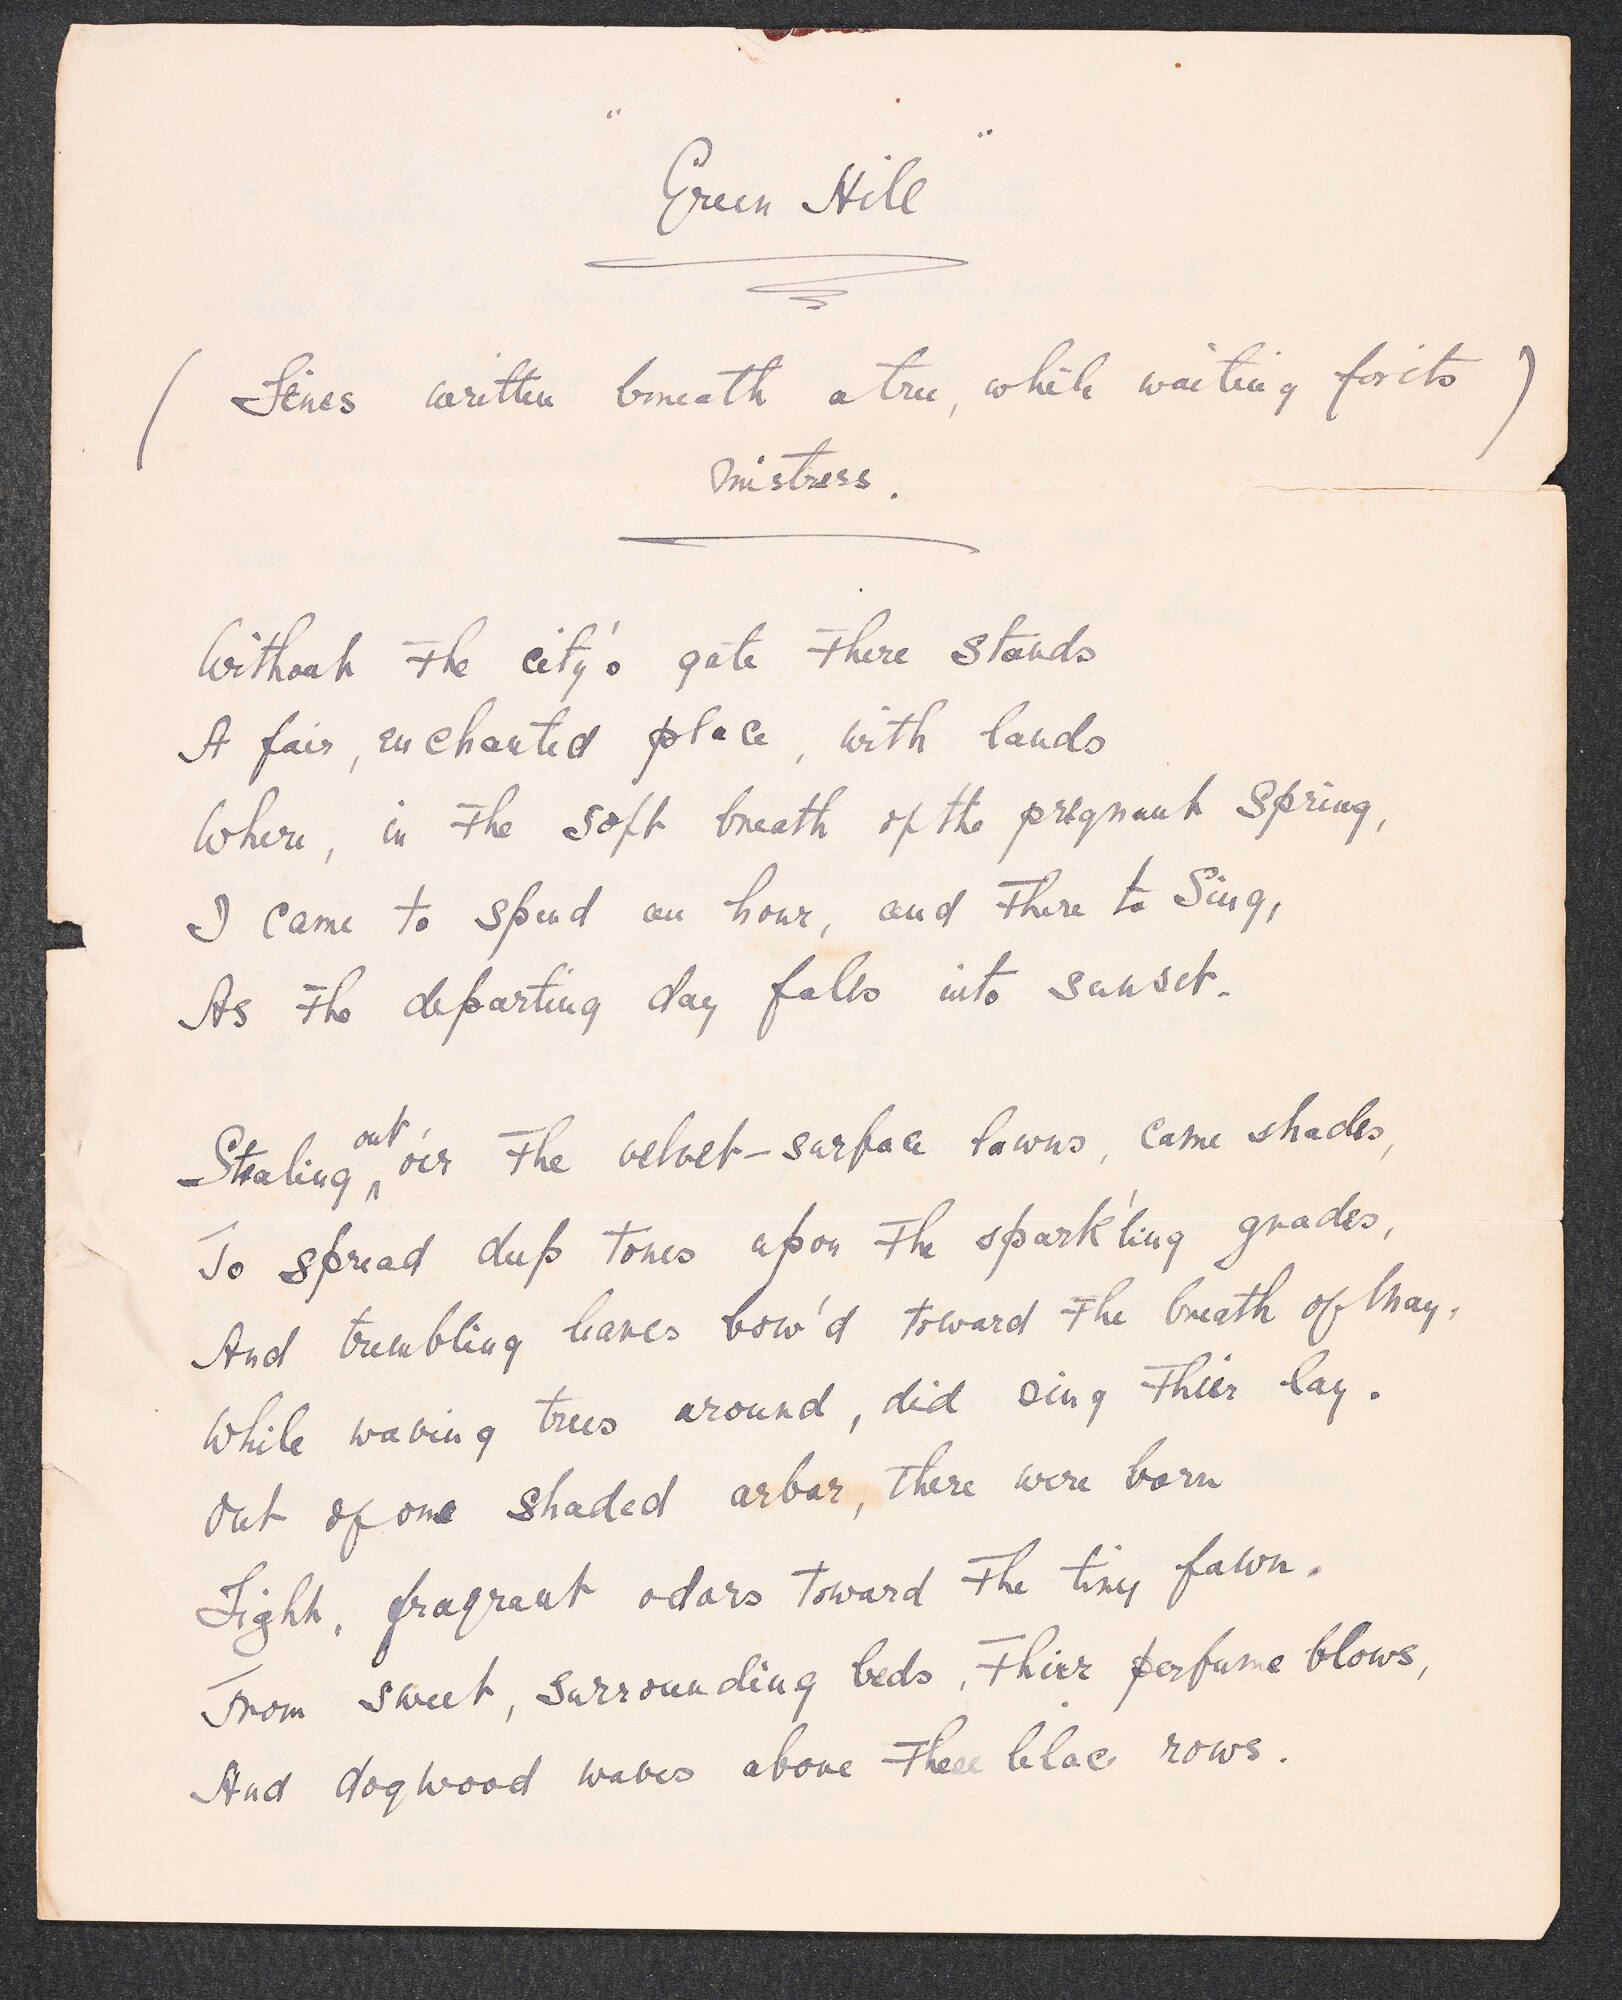 "Green Hill"
(Lines written beneath a tree, while waiting for its)
mistress.
Without the city's gate there stands
A fair, enchanted place, with lands
Where, in the soft breath of the pregnant Spring,
I came to spend an hour, and there to Sing,
As the departing day falls into sunset.
Stealing out o'er the velvet-surface lawns, came shades,
To spread deep tones upon the spark'ling grades,
And trembling leaves bow'd toward the breath of May,
While waving trees around, did sing thier lay.
Out of one shaded arbor, there were born
Light, fragrant odors toward the tiny fawn.
From sweet, surrounding beds, thier perfume blows,
And dogwood waves above thee lilac rows.